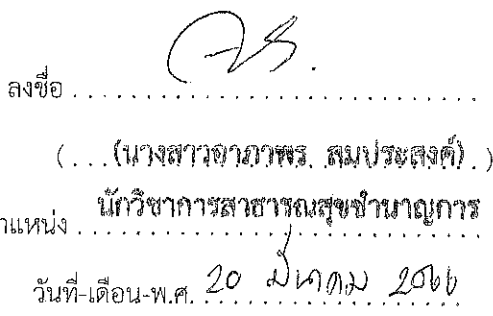 ลงชื่อ
(...(นางสาวอาภาพร สมประสงค์)..)
าแหน่ง นักวิชาการสาธารณสุขชำนาญการ
วันที่-เดือน-พ.ศ. 20 มีนาคม 2566